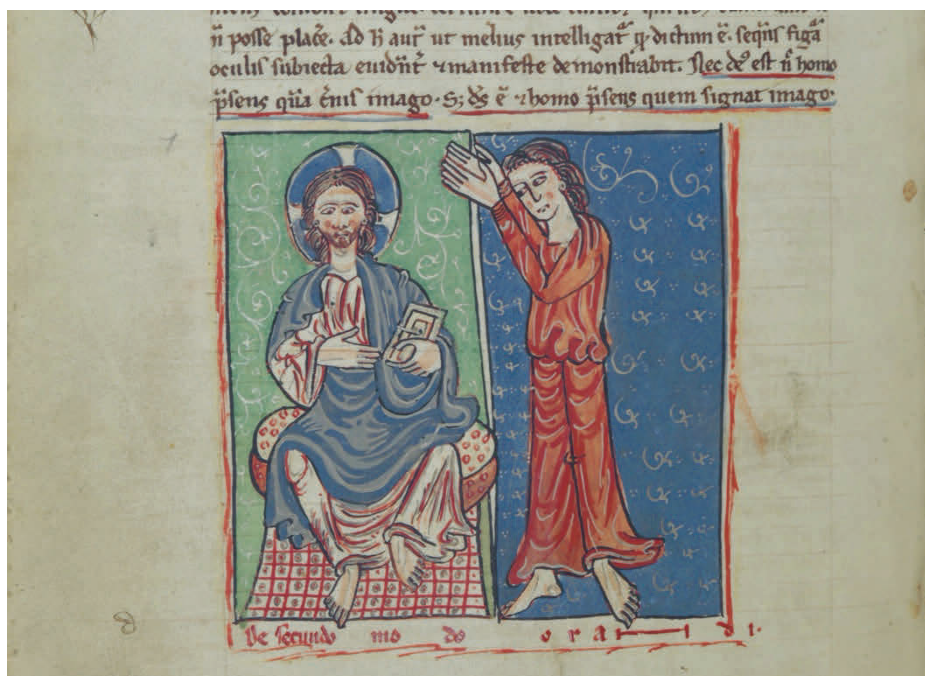 n̄ posse plac̄e. Ad h̄ aut̄ ut melius intelligat᷑ q̇ dictum ē. seq̄ns figᷓa
oculis subiecta euid̄nt᷑ ⁊ manifeste demonstrabit. Nec de᷒ est n̄ homo
p̄sens qᷓa c̄nis imago. S; d̄s ē ⁊ homo p̄sens quem signat imago.
De secundo mo do o r A n d i.